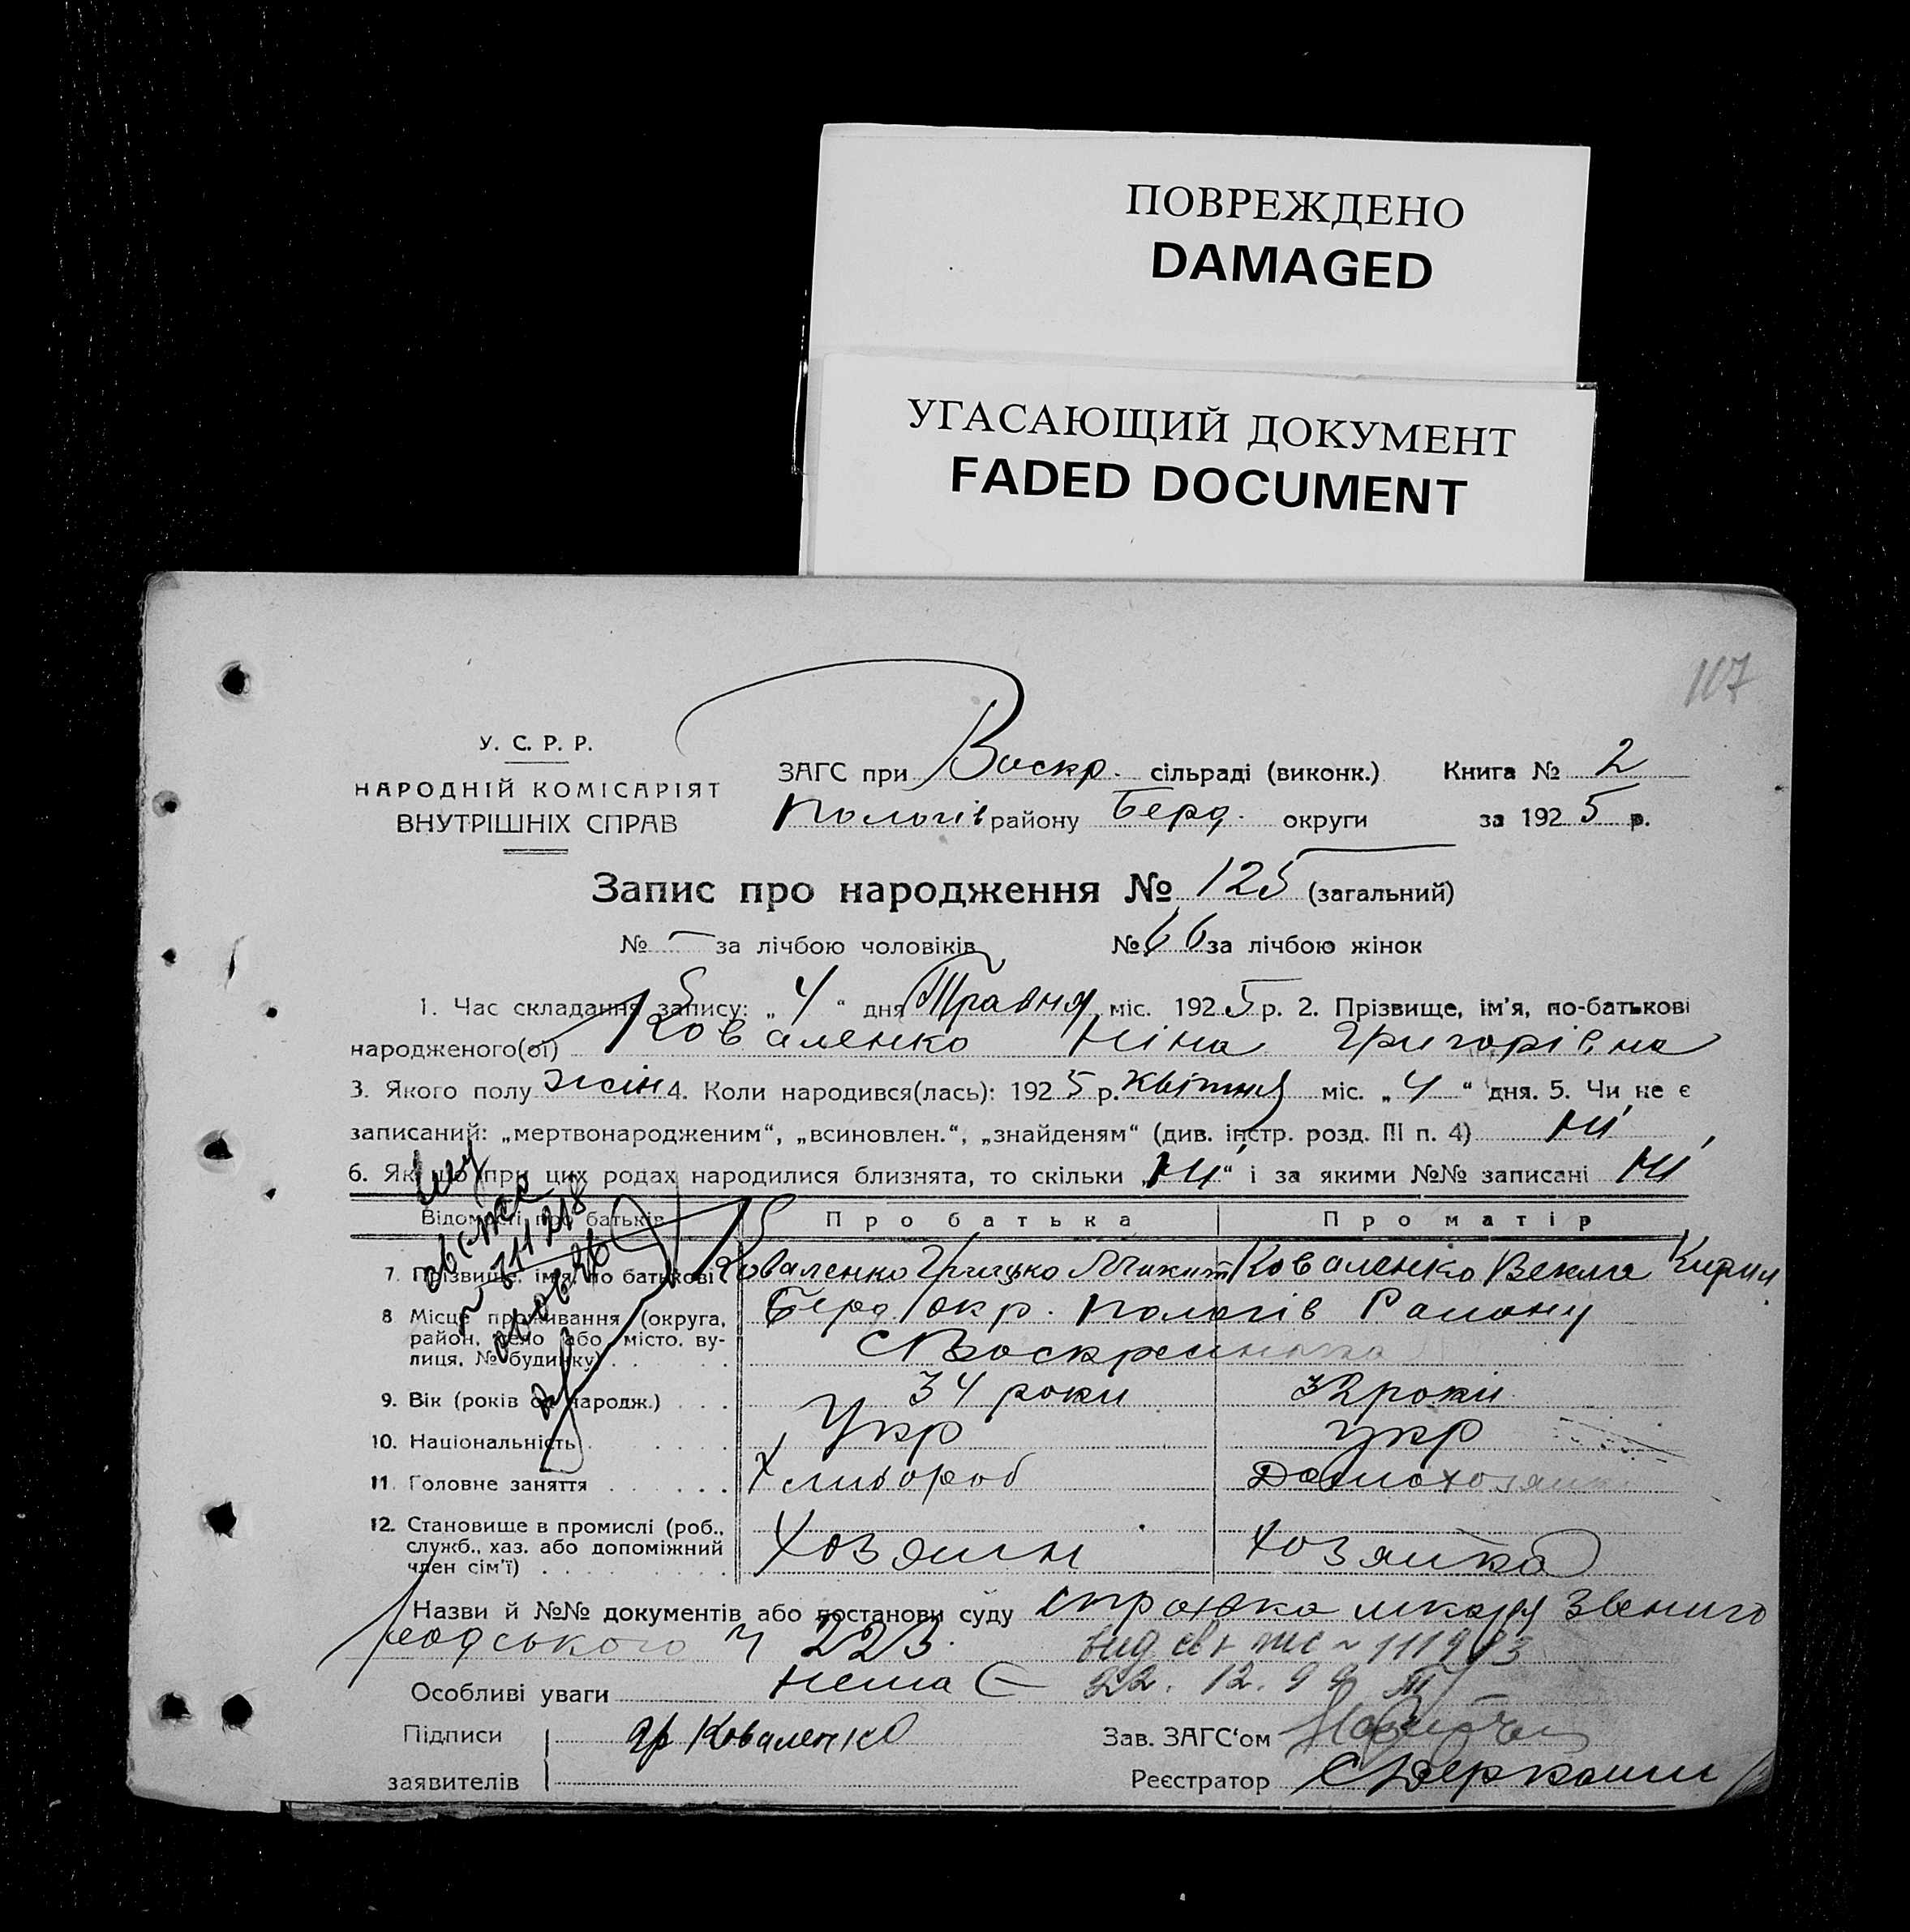 ПОВРЕЖДЕНО
DAMAGED
УГАСАЮЩИЙ ДОКУМЕНТ
FADED DOCUMENT
107
У. С. Р. Р.
НАРОДНІЙ КОМІСАРІЯТ
ВНУТРІШНІХ СПРАВ
ЗАГС при Воскр. сільраді (виконк.) Книга № 2
Пологів району Берд. округи за 1925 р.
Запис про народження № 125 (загальний)
№ — за лічбою чоловіків № 66 за лічбою жінок
1. Час складання запису: „ 4 " дня Травня міс. 1925 р. 2. Прізвище, ім'я, по-батькові
народженого(ої) Коваленко Ніна Григорівна
3. Якого полу жін 4. Коли народився(лась): 1925 р. квітня міс. „ 4 " дня. 5. Чи не є
записаний: „мертвонародженим", „всиновлен.", „знайденям" (див. інстр. розд. III п. 4) Ні
6. Якщо при цих родах народилися близнята, то скільки „Ні" і за якими №№ записані Ні
Відомості про батьків Про батька Про матір
7. Прізвище, ім'я, по батькові Коваленко Грицько Микит Коваленко Векла Кирил
8 Місце проживання (округа, район, село або місто, вулиця, № будинку) Берд. окр. Пологів Району
с Воскресенка
9. Вік (років од народж.) 34 роки 32 роки
10. Національність Укр Укр
11. Головне заняття Хлибороб Домохозяйка
12. Становище в промислі (роб., служб., хаз. або допоміжний член сім'ї) Хозяин Хозяйка
Назви й №№ документів або постанови суду справка Звениго
родського ч 223. вид св
22. 12.
Особливі уваги нема
Підписи гр Коваленко Зав. ЗАГС'ом
заявителів Реєстратор